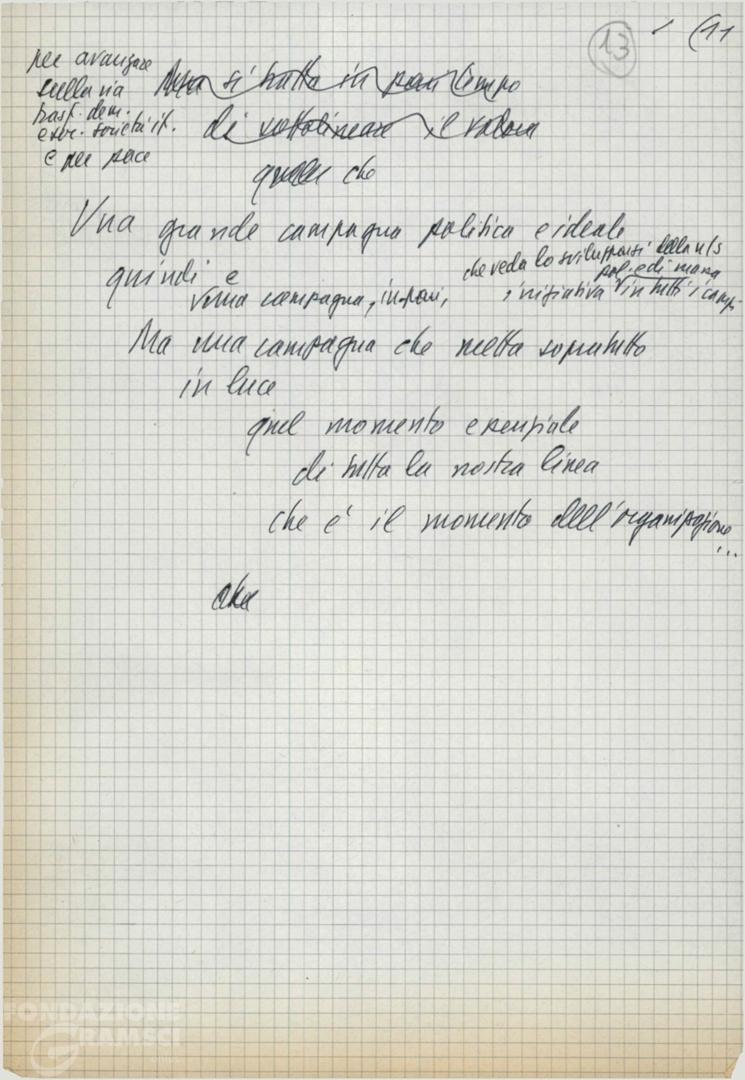 13
(11
per avanzare
sulla via
trasf. dem.
e soc. società it.
e per pace
Ma si tratta in pari tempo
di sottolineare il valore
quello che
Una grande campagna politica e ideale
quindi e
che veda lo svilupparsi della n/s
pol. e di massa
una campagna, insomma, iniziativa in tutti i campi
Ma una campagna che metta sopratutto
in luce
quel momento essenziale
di tutta la nostra linea
che è il momento dell'organizzazione
...
che
FONDAZIONE
GRAMSCI